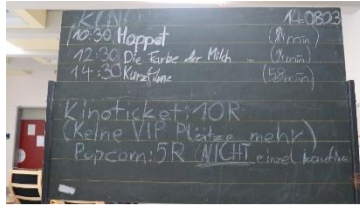 KINO 14.0823
10:30 Hoppet (81min)
12:30 Die Farbe der Milch - (94min)
14:30 Kurzfilme (58min)
Kinoticket: 10R
(Keine VIP Plätze mehr)
Popcorn: 5R (NICHT einzel kaufbar